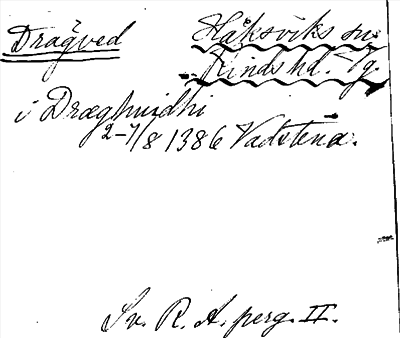 Dragved Håksviks sn.
Kinds hd. Vg.
i Dræghuidhi
2-7/8 1386 Vadstena.
Sv. R. A. perg. II.